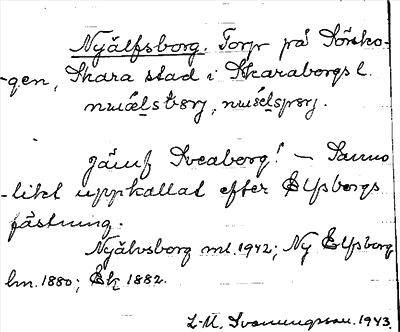 Nyälfsborg. Torp på Sörsko-
gen, Skara stad i Skaraborgs l.
Jämf Sveaborg! – Sanno-
likt uppkallat efter Elfsborgs
fästning.
Nyälvsborg ml. 1942; Ny Elfsborg
lm. 1880; Ek 1882.
L-M. Svenningsson. 1943.